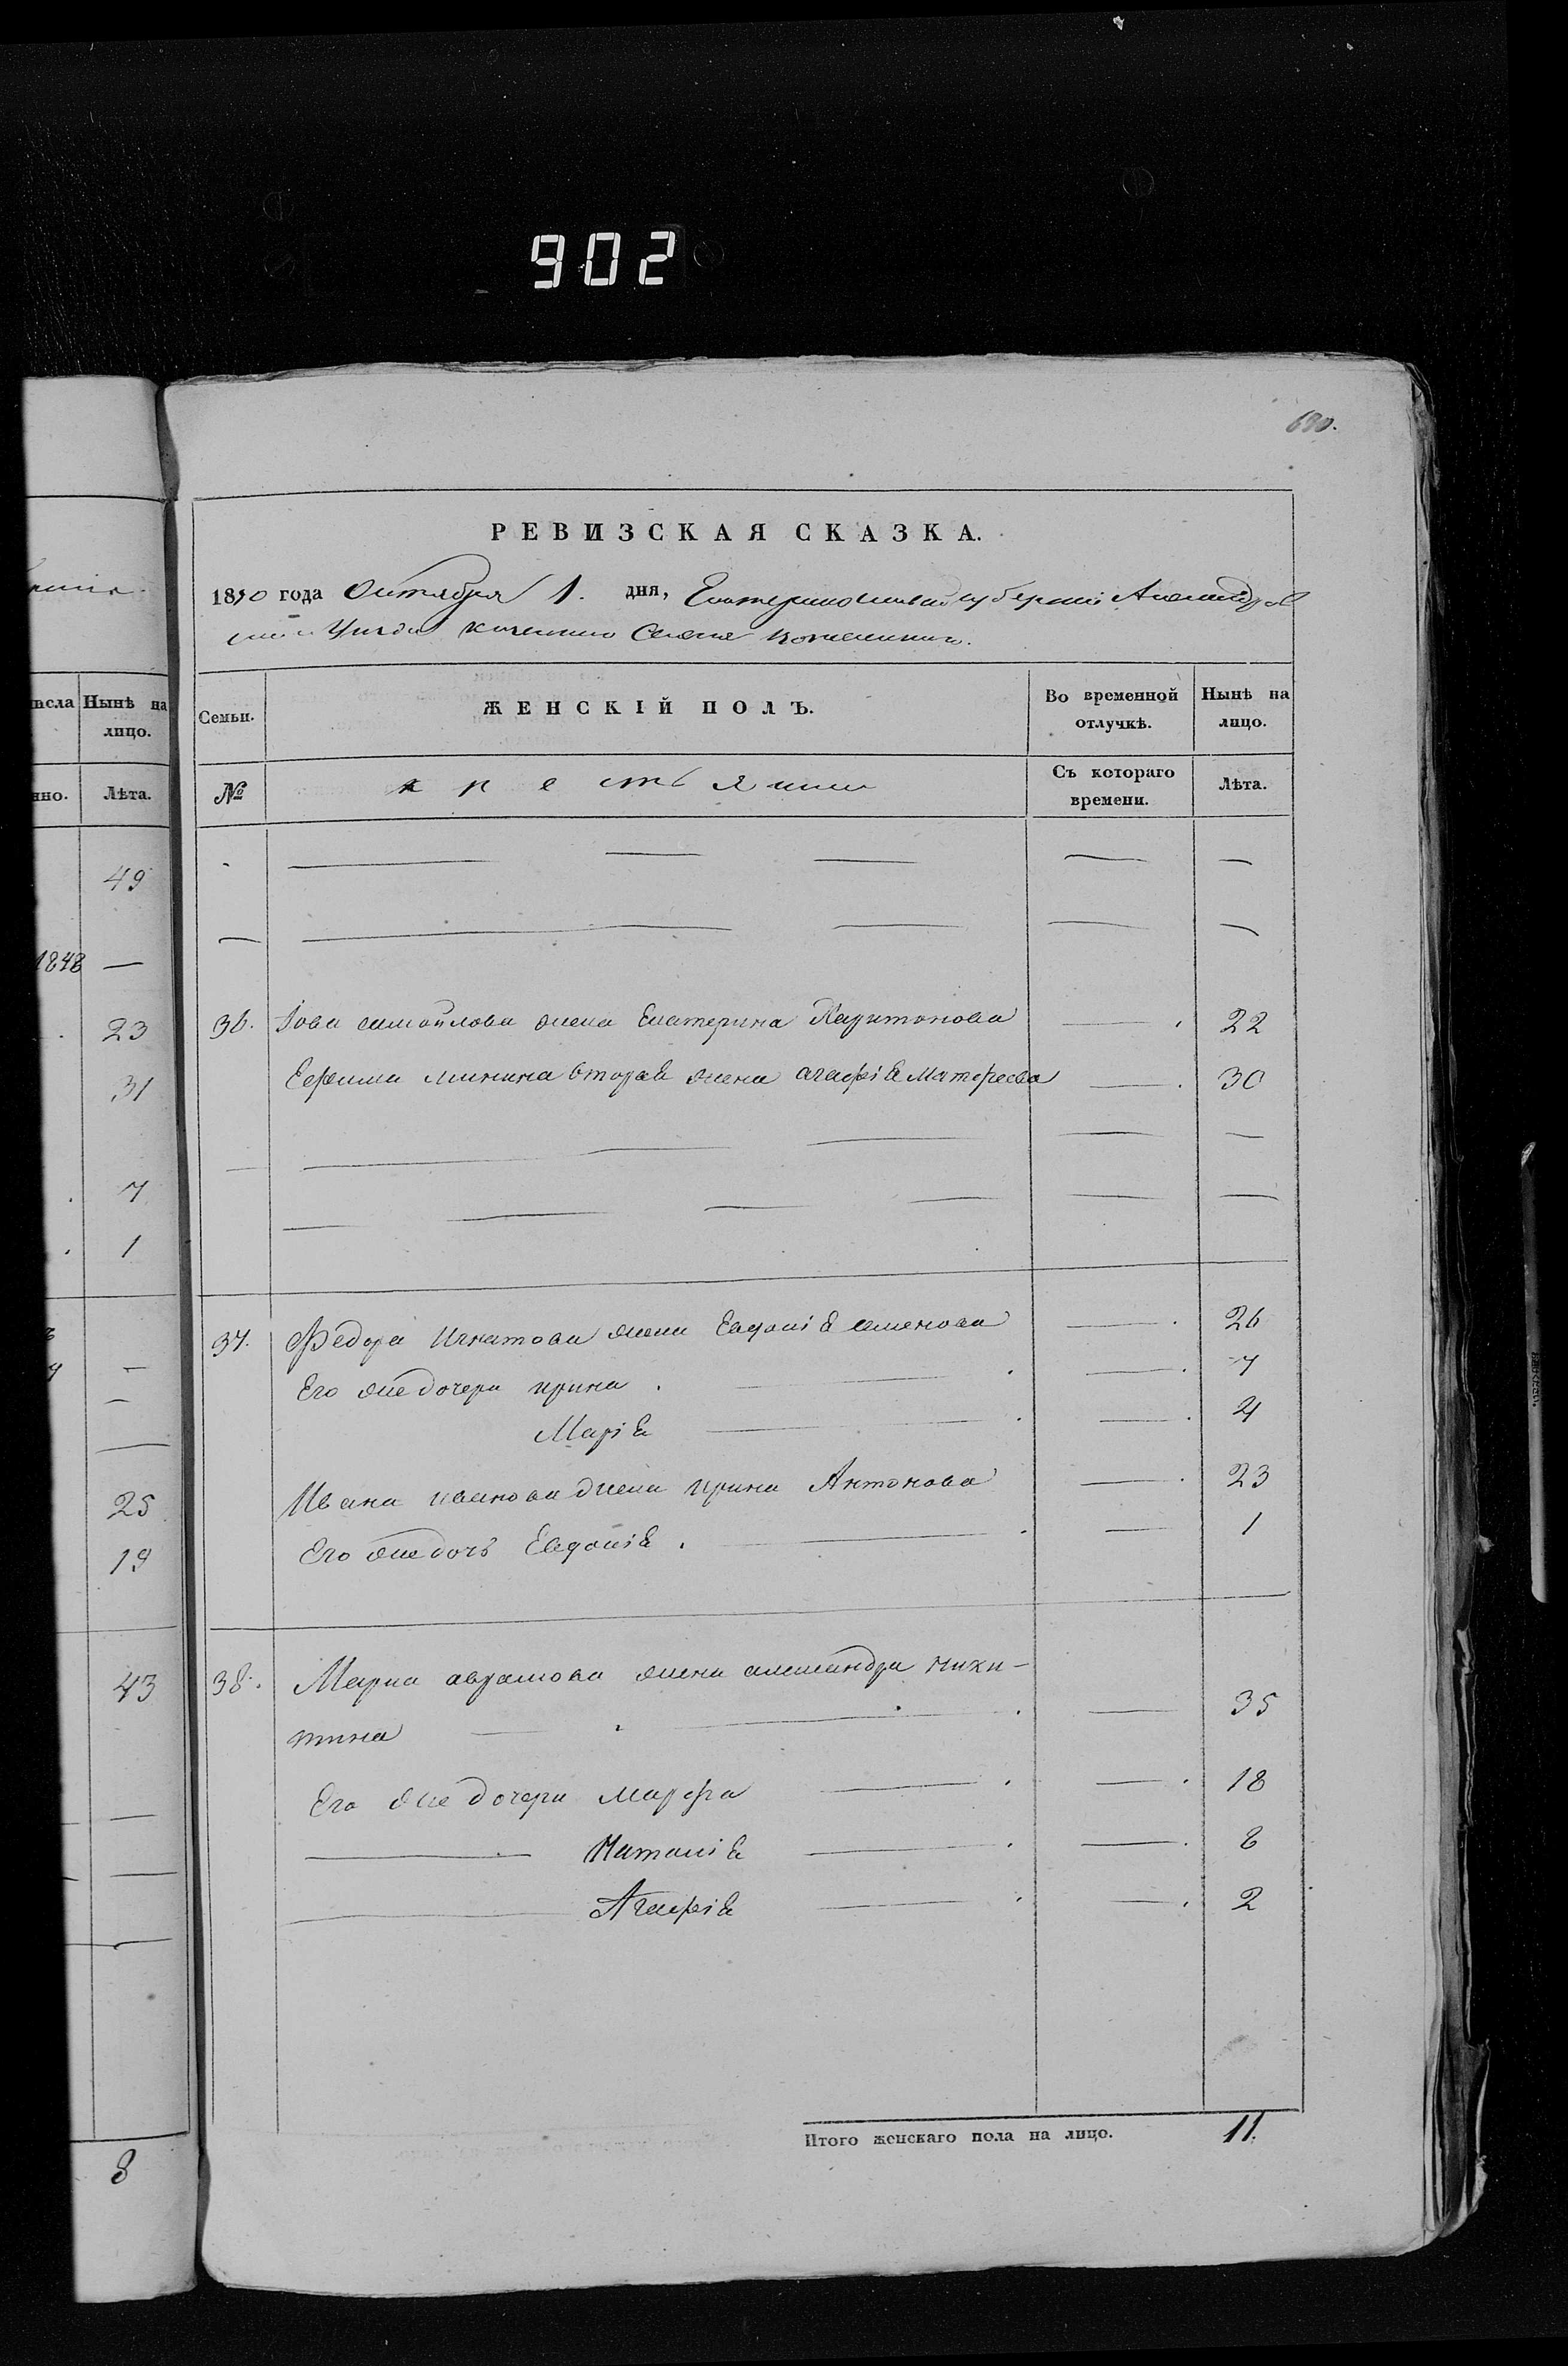 902
РЕВИЗСКАЯ СКАЗКА.
1850 года Октября 1. дня, Екатеринославской губернии Александров
ского Уезда казенного Селения
Семьи.
ЖЕНСКІЙ ПОЛЪ.
Во временной отлучкѣ.
Нынѣ на лицо.
№
крестьяне
Съ котораго времени.
Лѣта.
36. Іова самойлова жена Екатерина Харитонова 22
Ефима минина вторая жена агафія Матфеева 30
37. Федора Игнатова жена Евдокія семенова 26
Его же дочери ирина 7
Марія 4
Ивана иванова жена ирина Антонова 23
Его же дочь Евдокія 1
38. Марка аврамова жена александра ники-
тина 35
Его же дочери марфа 18
Наталія 8
Агафія 2
Итого женскаго пола на лицо. 11.
исла
Нынѣ на лицо.
нно.
Лѣта.
49
1848 —
23
31
7
1
25
19
43
8